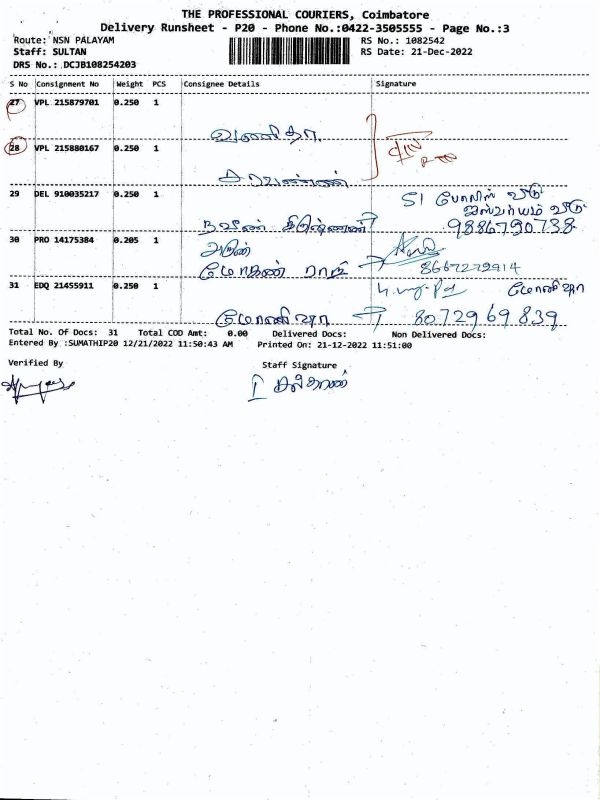 THE PROFESSIONAL COURIERS, Coimbatore
Delivery Runsheet - P20 - Phone No.:0422-3505555 - Page No.:3
Route: NSN PALAYAM
RS No.: 1082542
Staff: SULTAN
RS Date: 21-Dec-2022
DRS No.: DCJB108254203
S No Consignment No Weight PCS Consignee Details Signature
27 VPL 215879701 0.250 1
வனிதா
28 VPL 215880167 0.250 1
சரவணன்
29 DEL 910035217 0.250 1
SI போலிஸ் வீடு
நவீன் கிருஷ்ணன் 9886790738
30 PRO 14175384 0.205 1 அருண்
மோகன் ராம் 8667279914
31 EDQ 21455911 0.250 1 மோனிஷா
மோனிஷா 8072969839
Total No. Of Docs: 31 Total COD Amt: 0.00 Delivered Docs: Non Delivered Docs:
Entered By :SUMATHIP20 12/21/2022 11:50:43 AM Printed On: 21-12-2022 11:51:00
Verified By Staff Signature
சுல்தான்